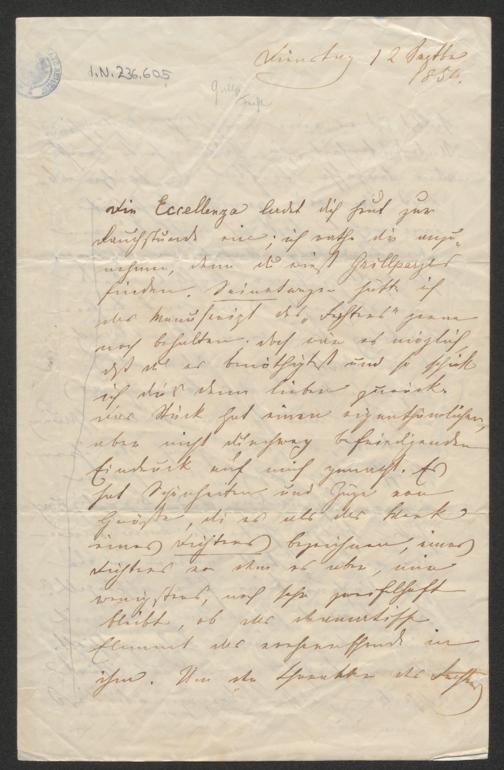 I.N. 236.605
Dienstag 12 Septbr
1854.
Die Eccellenza ladet dich heut zur
Rauchstunde ein; ich rathe dir anzu-
nehmen, denn du wirst Grillparzer
finden. Seinetwegen hätte ich
das Manuscript des „Fechters" gerne
noch behalten. doch wäre es möglich
daß du es benöthigtest und so schick
ich dirs denn lieber zurück.
das Stück hat einen eigenthümlichen,
aber nicht durchweg befriedigenden
Eindruck auf mich gemacht. Es
hat Schönheiten und Züge von
Größe, die es als das Werk
eines Dichters bezeichnen, eines
Dichters an dem es aber, mir
wenigstens, noch sehr zweifelhaft
bleibt, ob das dramatische
Element das vorherrschende in
ihm. Um die Charakter des Fechters